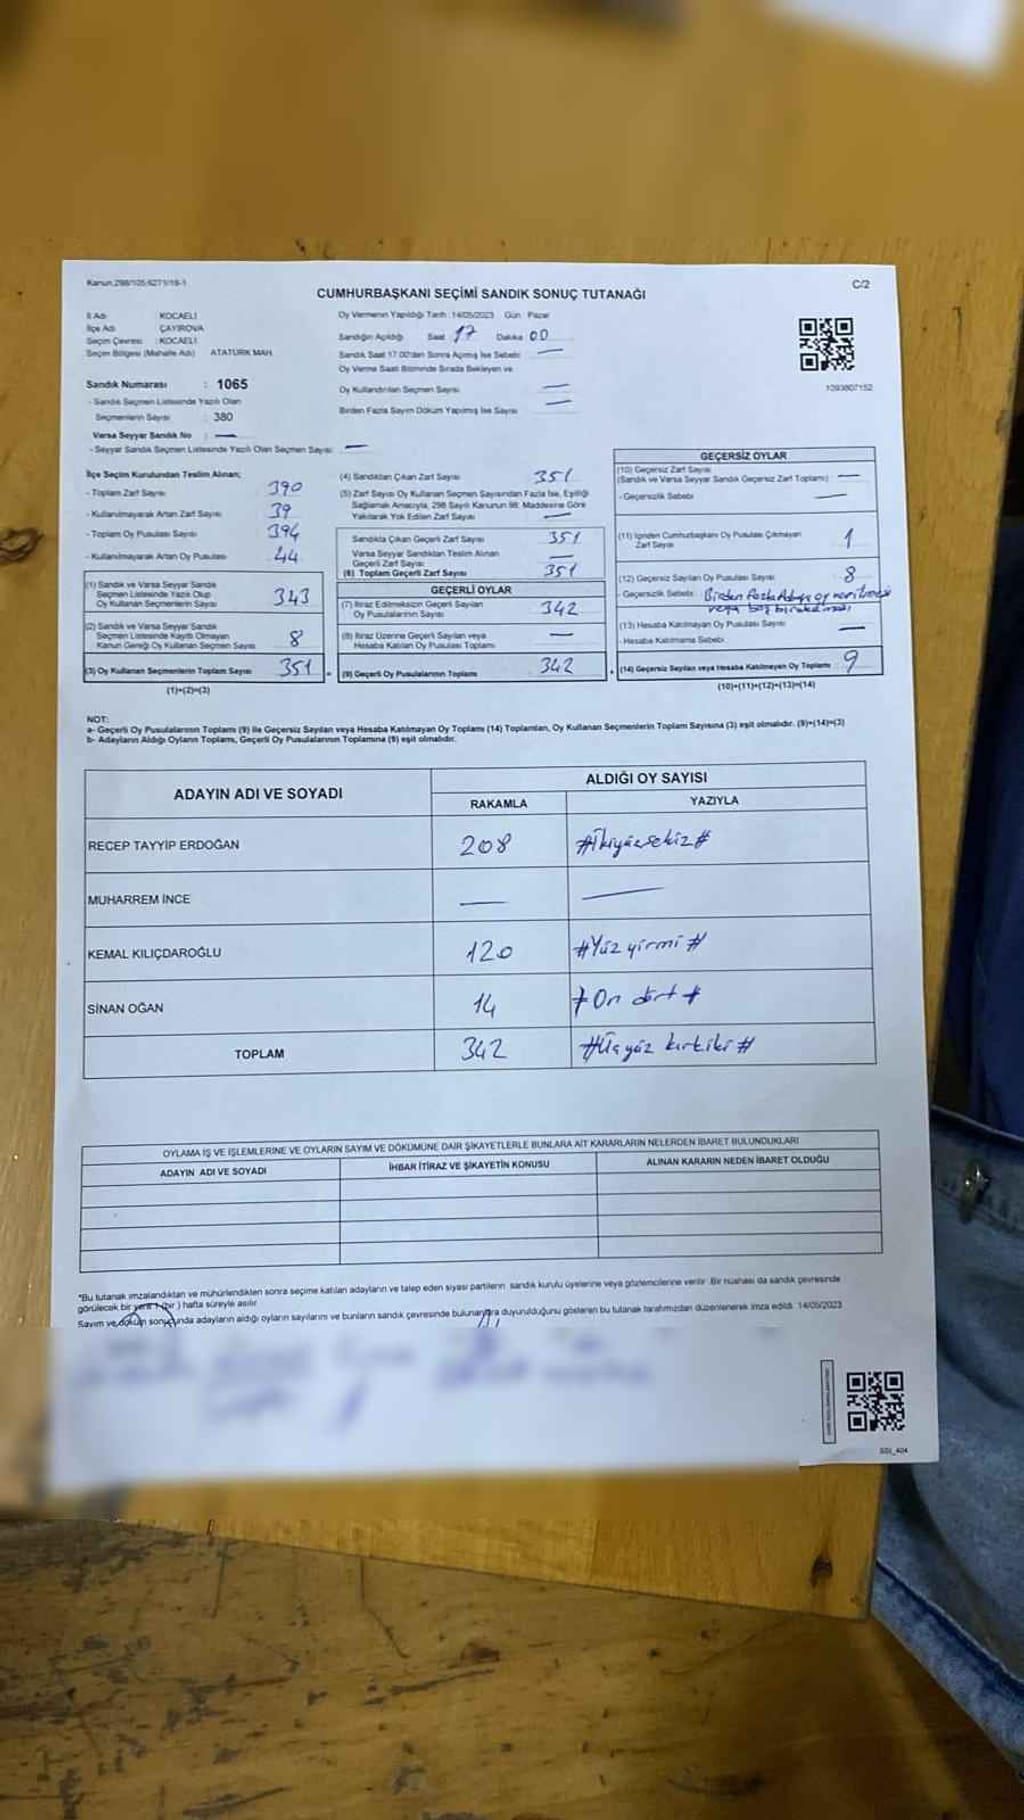 Kanun:298/105,6271/18-1
C/2
CUMHURBAŞKANI SEÇİMİ SANDIK SONUÇ TUTANAĞI
İl Adı : KOCAELİ
İlçe Adı : ÇAYIROVA
Seçim Çevresi : KOCAELİ
Seçim Bölgesi (Mahalle Adı) ATATÜRK MAH.
Sandık Numarası : 1065
- Sandık Seçmen Listesinde Yazılı Olan
Seçmenlerin Sayısı : 380
Varsa Seyyar Sandık No : —
- Seyyar Sandık Seçmen Listesinde Yazılı Olan Seçmen Sayısı: —
Oy Vermenin Yapıldığı Tarih : 14/05/2023 Gün : Pazar
Sandığın Açıldığı Saat 17 Dakika 00
Sandık Saat 17.00'den Sonra Açılmış İse Sebebi —
Oy Verme Saati Bitiminde Sırada Bekleyen ve
Oy Kullandırılan Seçmen Sayısı —
Birden Fazla Sayım Döküm Yapılmış İse Sayısı —
1093807152
İlçe Seçim Kurulundan Teslim Alınan;
- Toplam Zarf Sayısı 390
- Kullanılmayarak Artan Zarf Sayısı 39
- Toplam Oy Pusulası Sayısı 394
- Kullanılmayarak Artan Oy Pusulası 44
(1) Sandık ve Varsa Seyyar Sandık
Seçmen Listesinde Yazılı Olup
Oy Kullanan Seçmenlerin Sayısı 343
(2) Sandık ve Varsa Seyyar Sandık
Seçmen Listesinde Kayıtlı Olmayan
Kanun Gereği Oy Kullanan Seçmen Sayısı 8
(3) Oy Kullanan Seçmenlerin Toplam Sayısı 351
(1)+(2)=(3)
(4) Sandıktan Çıkan Zarf Sayısı 351
(5) Zarf Sayısı Oy Kullanan Seçmen Sayısından Fazla İse, Eşitliği
Sağlamak Amacıyla, 298 Sayılı Kanunun 98. Maddesine Göre
Yakılarak Yok Edilen Zarf Sayısı —
Sandıkta Çıkan Geçerli Zarf Sayısı 351
Varsa Seyyar Sandıktan Teslim Alınan
Geçerli Zarf Sayısı —
(6) Toplam Geçerli Zarf Sayısı 351
GEÇERLİ OYLAR
(7) İtiraz Edilmeksizin Geçerli Sayılan
Oy Pusulalarının Sayısı 342
(8) İtiraz Üzerine Geçerli Sayılan veya
Hesaba Katılan Oy Pusulası Toplamı —
(9) Geçerli Oy Pusulalarının Toplamı 342
GEÇERSİZ OYLAR
(10) Geçersiz Zarf Sayısı
(Sandık ve Varsa Seyyar Sandık Geçersiz Zarf Toplamı) —
- Geçersizlik Sebebi —
(11) İçinden Cumhurbaşkanı Oy Pusulası Çıkmayan
Zarf Sayısı 1
(12) Geçersiz Sayılan Oy Pusulası Sayısı 8
- Geçersizlik Sebebi : Birden fazla Adaya oy verilmesi
veya boş bırakılması
(13) Hesaba Katılmayan Oy Pusulası Sayısı —
- Hesaba Katılmama Sebebi
(14) Geçersiz Sayılan veya Hesaba Katılmayan Oy Toplamı 9
(10)+(11)+(12)+(13)=(14)
NOT:
a- Geçerli Oy Pusulalarının Toplamı (9) ile Geçersiz Sayılan veya Hesaba Katılmayan Oy Toplamı (14) Toplamları, Oy Kullanan Seçmenlerin Toplam Sayısına (3) eşit olmalıdır. (9)+(14)=(3)
b- Adayların Aldığı Oyların Toplamı, Geçerli Oy Pusulalarının Toplamına (9) eşit olmalıdır.
ADAYIN ADI VE SOYADI
ALDIĞI OY SAYISI
RAKAMLA YAZIYLA
RECEP TAYYİP ERDOĞAN 208 #İkiyüzsekiz#
MUHARREM İNCE — —
KEMAL KILIÇDAROĞLU 120 #Yüz yirmi#
SİNAN OĞAN 14 #On dört#
TOPLAM 342 #Üçyüz kırkiki#
OYLAMA İŞ VE İŞLEMLERİNE VE OYLARIN SAYIM VE DÖKÜMÜNE DAİR ŞİKAYETLERLE BUNLARA AİT KARARLARIN NELERDEN İBARET BULUNDUKLARI
ADAYIN ADI VE SOYADI İHBAR İTİRAZ VE ŞİKAYETİN KONUSU ALINAN KARARIN NEDEN İBARET OLDUĞU
*Bu tutanak imzalandıktan ve mühürlendikten sonra seçime katılan adayların ve talep eden siyasi partilerin sandık kurulu üyelerine veya gözlemcilerine verilir. Bir nüshası da sandık çevresinde
görülecek bir yere 1 (bir) hafta süreyle asılır.
Sayım ve döküm sonucunda adayların aldığı oyların sayılarını ve bunların sandık çevresinde bulunanlara duyurulduğunu gösteren bu tutanak tarafımızdan düzenlenerek imza edildi. 14/05/2023
SSI_404